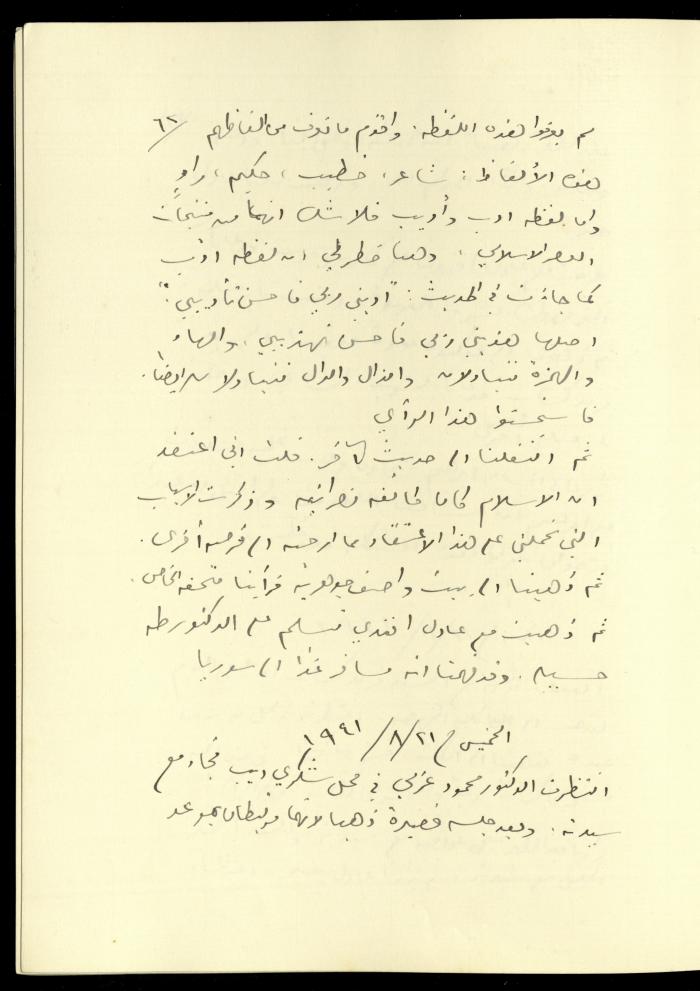 لم يعرفوا هذه اللفظه. واقدم ما نعرف من الفاظهم /٦٢
هذه الألفاظ: شاعر، خطيب، حكيم، راوٍ
واما لفظه ادب وأديب فلا شك انهما من منتجات
العصر الاسلامي، وهنا خطر لي ان لفظه ادب
كما جاءت في الحديث: "ادبني ربي فاحسن تأديبي"
اصلها هذبني ربي فاحسن تهذيبي. والهاء
والهمزة تتبادلان والذال والدال تتبادلان ايضا.
فاستحسنوا هذا الرأي
ثم انتقلنا الى حديث آخر. قلت اني اعتقد
ان الاسلام كان طائفه نصرانيه وذكرت الاسباب
التي تحملني على هذا الاعتقاد مما ارجئه الى فرصه أخرى.
ثم ذهبنا الى بيت واصف جوهريه فرأينا متحفه الخاص.
ثم ذهبت مع عادل افندي نسلم على الدكتور طه
حسين. وقد فهمنا انه مسافر غدًا الى سوريا
الخميس في ٢١/٨/١٩٤١
انتظرت الدكتور محمود عزمي في محل شكري ديب فجاء مع
سيدته. وبعد جلسه قصيرة ذهبا لانهما مرتبطان بموعد